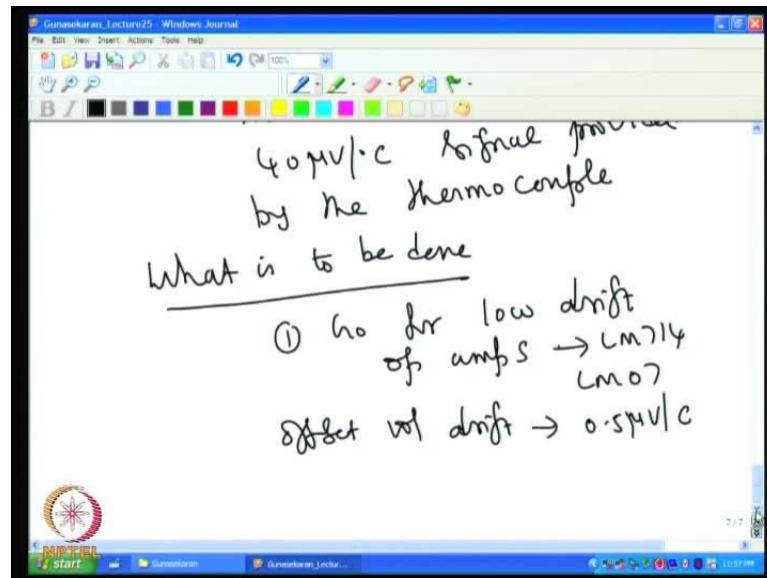 Gunasekaran_Lecture25 - Windows Journal
File Edit View Insert Actions Tools Help
100%
B I
40 μV/°C Signal
by the thermo couple
What is to be done
① Go for low drift
op amps → LM714
LM07
offset vol drift → 0.5μV/C
7/7
NPTEL
start Gunasekaran Gunasekaran_Lectur... 11:57 PM